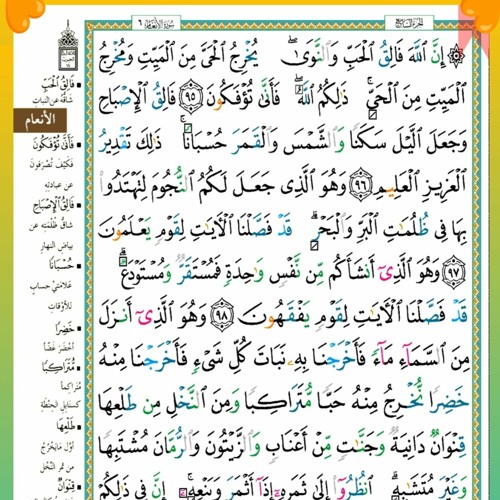 سورة الأنعام ٦
الجزء السابع
۞ إِنَّ ٱللَّهَ فَالِقُ ٱلْحَبِّ وَٱلنَّوَىٰ ۖ يُخْرِجُ ٱلْحَىَّ مِنَ ٱلْمَيِّتِ وَمُخْرِجُ
ٱلْمَيِّتِ مِنَ ٱلْحَىِّ ۚ ذَٰلِكُمُ ٱللَّهُ ۖ فَأَنَّىٰ تُؤْفَكُونَ ﴿٩٥﴾ فَالِقُ ٱلْإِصْبَاحِ
وَجَعَلَ ٱلَّيْلَ سَكَنًا وَٱلشَّمْسَ وَٱلْقَمَرَ حُسْبَانًا ۚ ذَٰلِكَ تَقْدِيرُ
ٱلْعَزِيزِ ٱلْعَلِيمِ ﴿٩٦﴾ وَهُوَ ٱلَّذِى جَعَلَ لَكُمُ ٱلنُّجُومَ لِتَهْتَدُوا۟
بِهَا فِى ظُلُمَٰتِ ٱلْبَرِّ وَٱلْبَحْرِ ۗ قَدْ فَصَّلْنَا ٱلْءَايَٰتِ لِقَوْمٍ يَعْلَمُونَ
﴿٩٧﴾ وَهُوَ ٱلَّذِىٓ أَنشَأَكُم مِّن نَّفْسٍ وَٰحِدَةٍ فَمُسْتَقَرٌّ وَمُسْتَوْدَعٌ ۗ
قَدْ فَصَّلْنَا ٱلْءَايَٰتِ لِقَوْمٍ يَفْقَهُونَ ﴿٩٨﴾ وَهُوَ ٱلَّذِىٓ أَنزَلَ
مِنَ ٱلسَّمَآءِ مَآءً فَأَخْرَجْنَا بِهِۦ نَبَاتَ كُلِّ شَىْءٍ فَأَخْرَجْنَا مِنْهُ
خَضِرًا نُّخْرِجُ مِنْهُ حَبًّا مُّتَرَاكِبًا وَمِنَ ٱلنَّخْلِ مِن طَلْعِهَا
قِنْوَانٌ دَانِيَةٌ وَجَنَّٰتٍ مِّنْ أَعْنَابٍ وَٱلزَّيْتُونَ وَٱلرُّمَّانَ مُشْتَبِهًا
وَغَيْرَ مُتَشَٰبِهٍ ۗ ٱنظُرُوٓا۟ إِلَىٰ ثَمَرِهِۦٓ إِذَآ أَثْمَرَ وَيَنْعِهِۦٓ ۚ إِنَّ فِى ذَٰلِكُمْ
فَالِقُ الْحَبِّ
شاقُّه عن النبات
الأنعام
فَأَنَّى تُؤْفَكُونَ
فكيف تُصْرَفون
عن عبادته
فَالِقُ الْإِصْبَاحِ
شاقّ ظُلمته عن
بياض النهار
حُسْبَانًا
علامتَيْ حساب
للأوقات
خَضِرًا
أخضر غضًّا
مُتَرَاكِبًا
متراكمًا
كسنابل الحنطة
طَلْعِهَا
أول ما يخرج
من ثمر النخل
قِنْوَانٌ